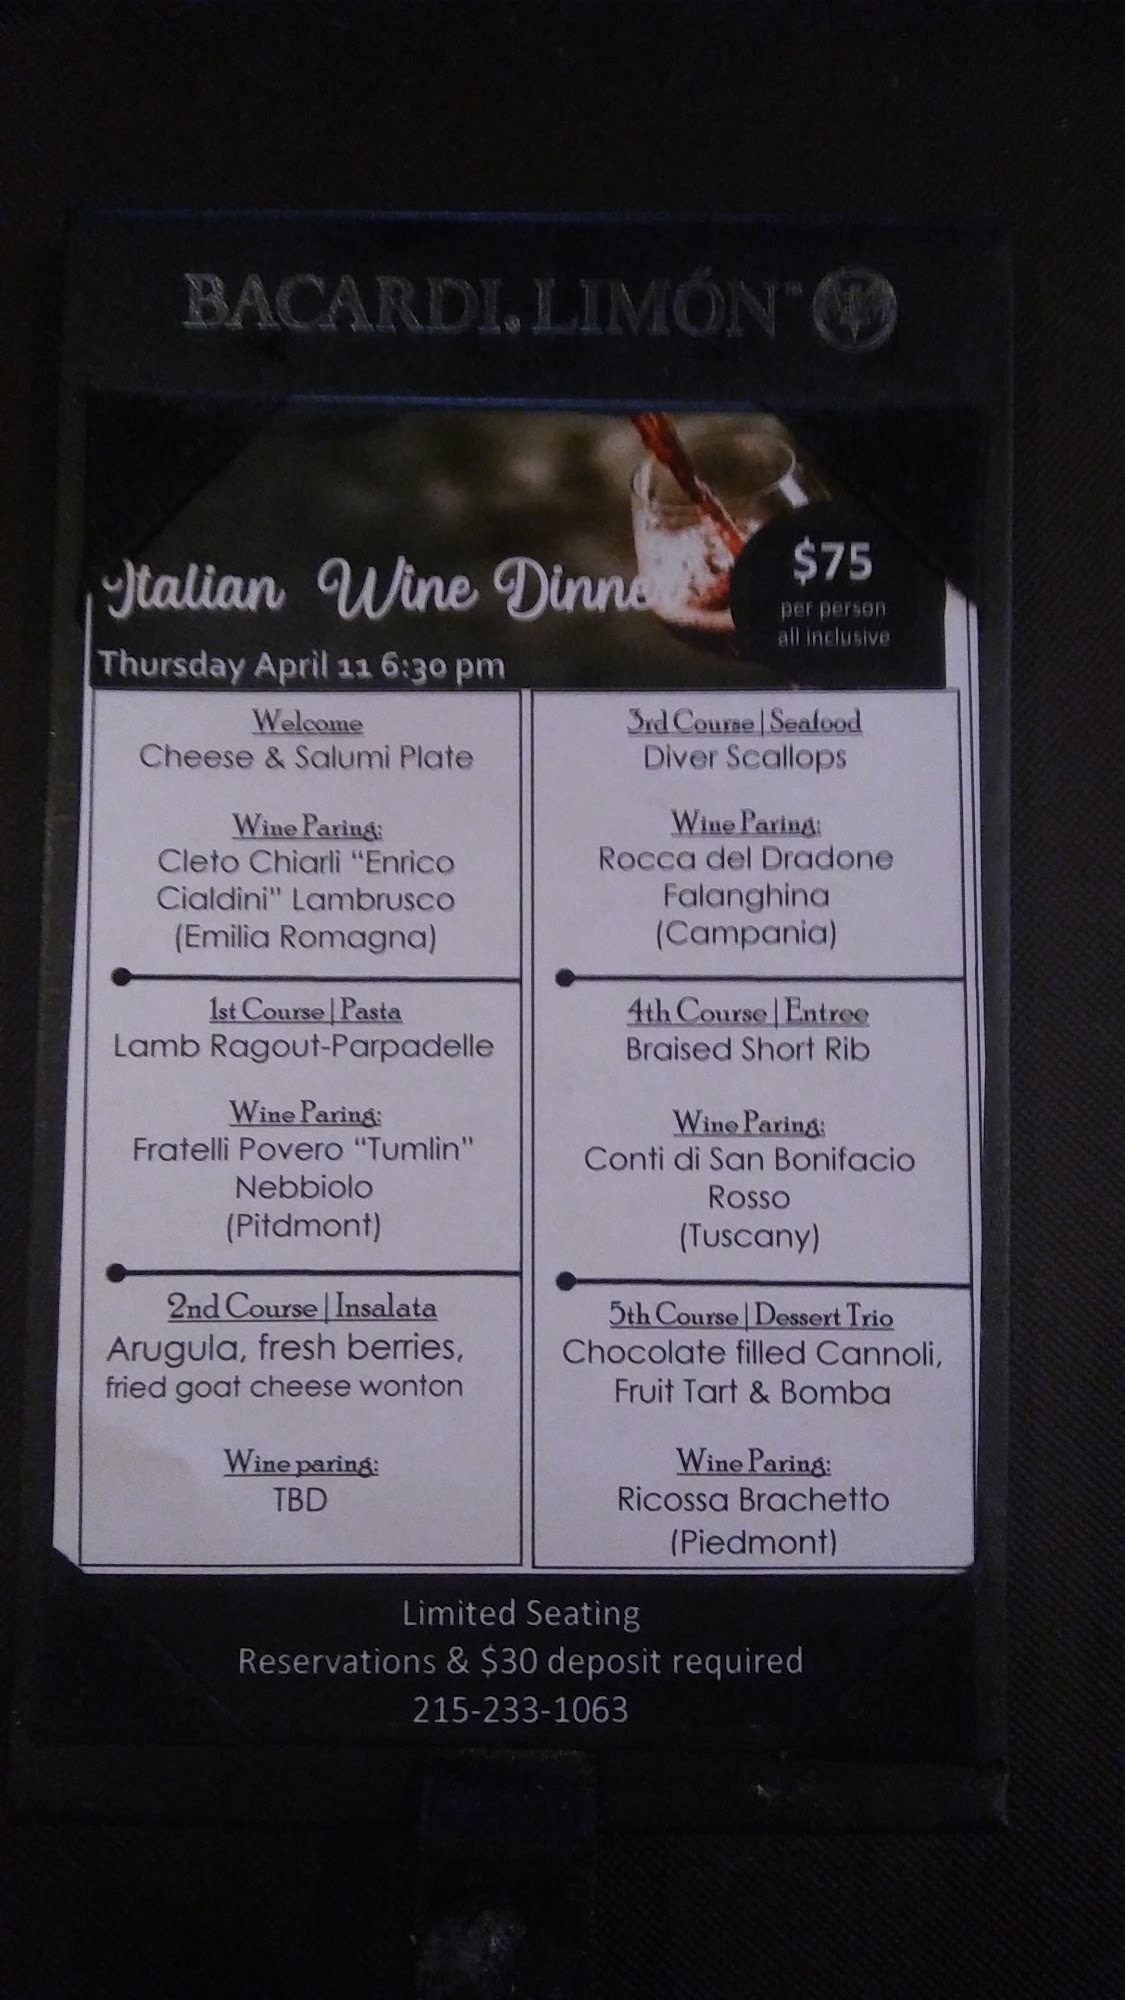 BACARDI. LIMÓN™
Italian Wine Dinne
$75
per person
all inclusive
Thursday April 11 6:30 pm
Welcome
Cheese & Salumi Plate
Wine Paring:
Cleto Chiarli “Enrico
Cialdini" Lambrusco
(Emilia Romagna)
1st Course | Pasta
Lamb Ragout-Parpadelle
Wine Paring:
Fratelli Povero “Tumlin"
Nebbiolo
(Pitdmont)
2nd Course | Insalata
Arugula, fresh berries,
fried goat cheese wonton
Wine paring:
TBD
3rd Course | Seafood
Diver Scallops
Wine Paring:
Rocca del Dradone
Falanghina
(Campania)
4th Course | Entree
Braised Short Rib
Wine Paring:
Conti di San Bonifacio
Rosso
(Tuscany)
5th Course | Dessert Trio
Chocolate filled Cannoli,
Fruit Tart & Bomba
Wine Paring:
Ricossa Brachetto
(Piedmont)
Limited Seating
Reservations & $30 deposit required
215-233-1063